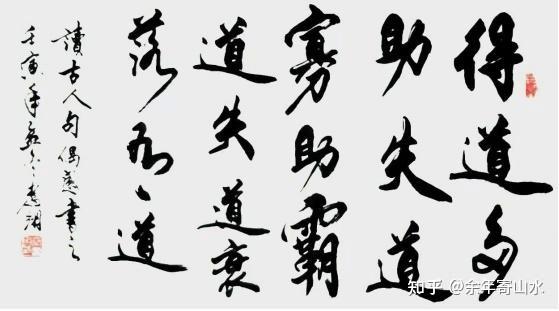 得道多
助失道
寡助霸
道失道衰
落道
讀古人句偶感書之
壬寅年
知乎 @余年寄山水